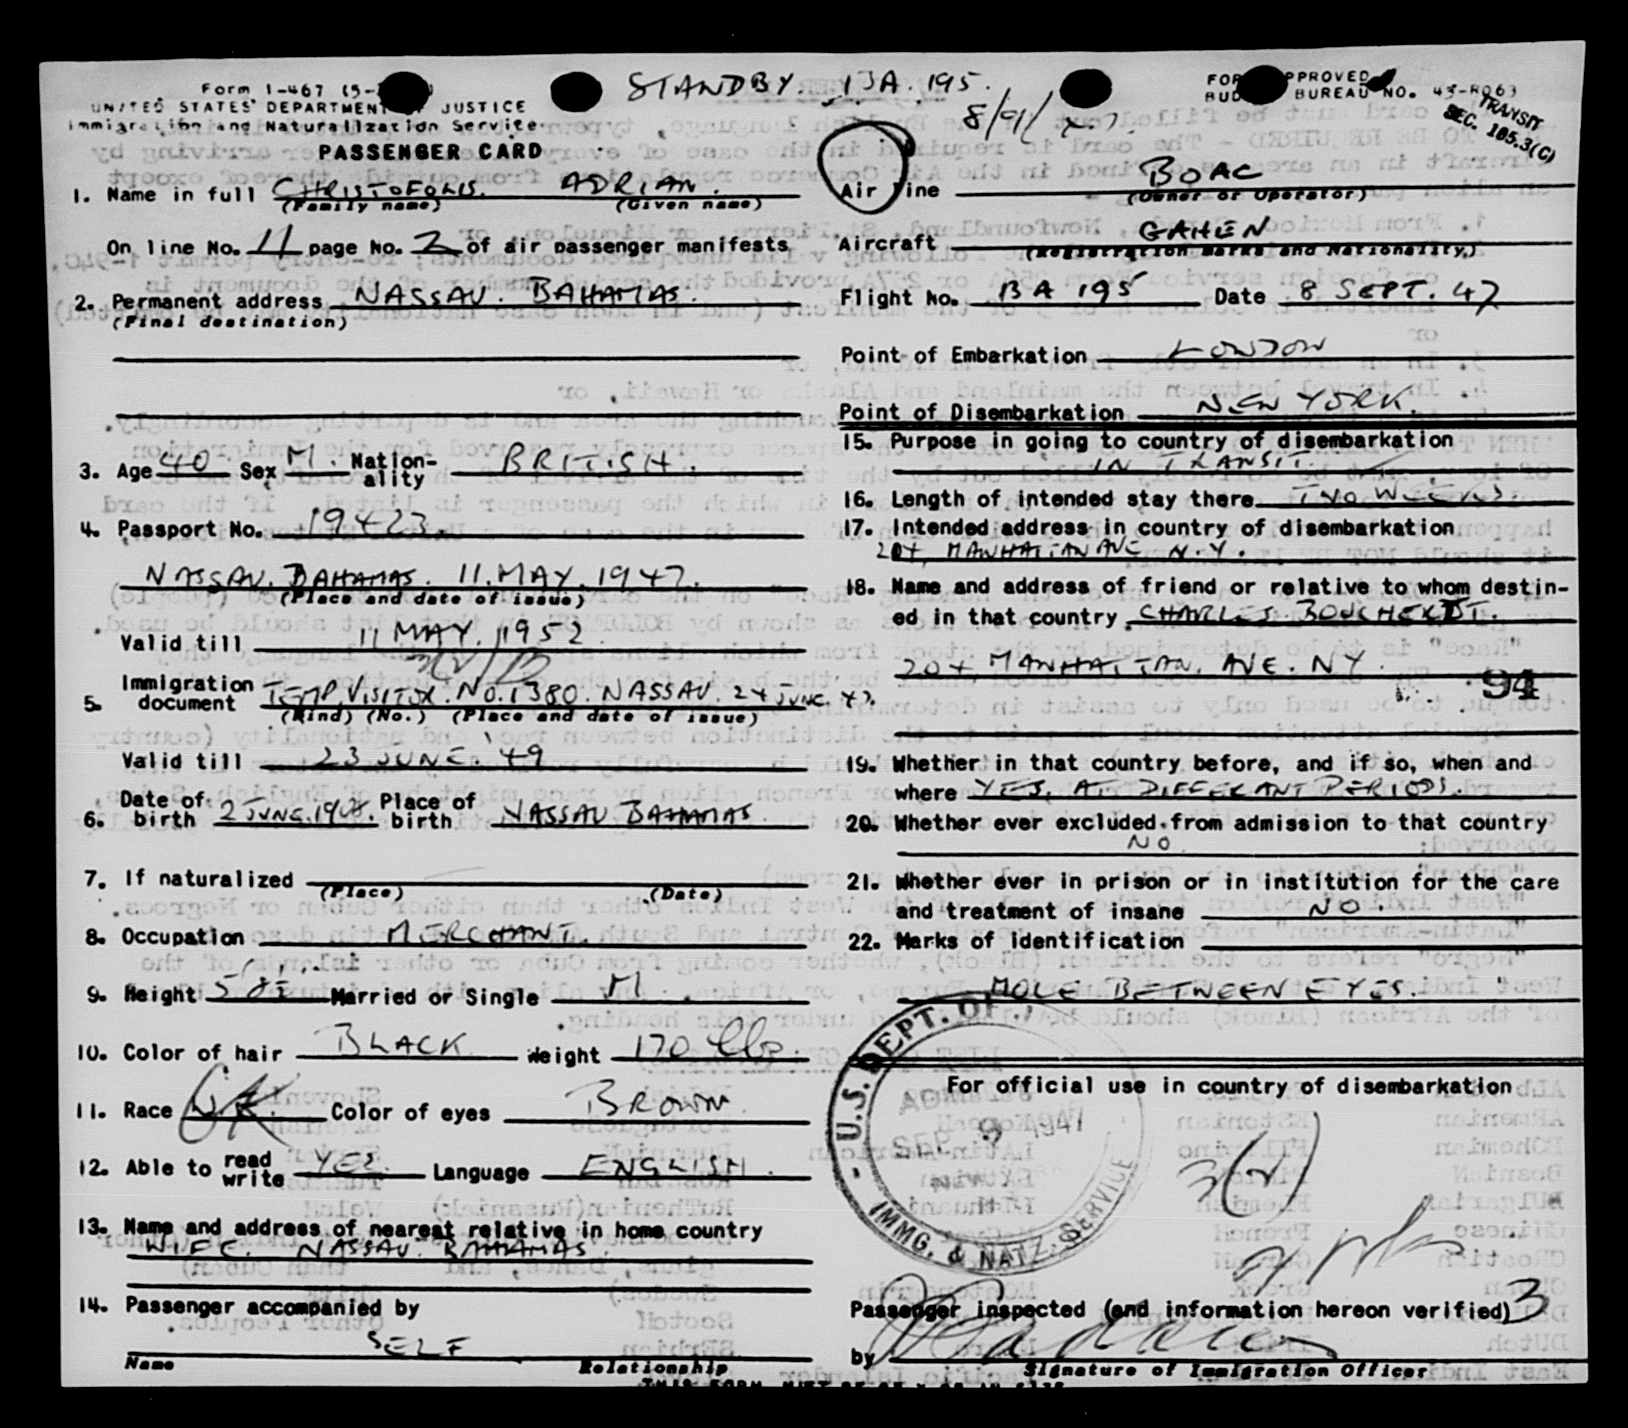 STANDBY. BA. 195.
8/9/47.
Form I-467
UNITED STATES DEPARTMENT OF JUSTICE
Immigration and Naturalization Service
PASSENGER CARD
FORM APPROVED
BUDGET BUREAU NO. 43-R063
TRANSIT
SEC. 185.3(C)
1. Name in full CHRISTOFOLIS. ADRIAN.
(Family name) (Given name)
On line No. 11 page No. 2 of air passenger manifests
2. Permanent address NASSAU. BAHAMAS.
(Final destination)
3. Age 40 Sex M. Nation-ality BRITISH.
4. Passport No. 19423.
NASSAU. BAHAMAS. 11. MAY. 1947.
(Place and date of issue)
Valid till 11 MAY. 1952
5. Immigration document TEMP. VISITOR. No. 1380. NASSAU. 24 JUNE 47.
(Kind) (No.) (Place and date of issue)
Valid till 23 JUNE. 49
6. Date of birth 2 JUNE. Place of birth NASSAU BAHAMAS.
7. If naturalized
(Place) (Date)
8. Occupation MERCHANT.
9. Height Married or Single M.
10. Color of hair BLACK Weight 170 lbs
11. Race Color of eyes BROWN.
12. Able to read write YES. Language ENGLISH.
13. Name and address of nearest relative in home country
WIFE. NASSAU. BAHAMAS.
14. Passenger accompanied by
SELF
Name Relationship
Air line BOAC
(Owner or Operator)
Aircraft GAHEN
(Registration marks and Nationality)
Flight No. BA 195 Date 8 SEPT. 47
Point of Embarkation LONDON
Point of Disembarkation NEW YORK.
15. Purpose in going to country of disembarkation
IN TRANSIT.
16. Length of intended stay there TWO WEEKS.
17. Intended address in country of disembarkation
204, MANHATTAN AVE. N.Y.
18. Name and address of friend or relative to whom destin-
ed in that country CHARLES.
204 MANHATTAN. AVE. NY.
94
19. Whether in that country before, and if so, when and
where YES, AT DIFFERANT PERIODS.
20. Whether ever excluded from admission to that country
NO.
21. Whether ever in prison or in institution for the care
and treatment of insane NO.
22. Marks of identification
MOLE BETWEEN EYES.
For official use in country of disembarkation
U.S. DEPT. OF
ADMITTED
SEP 9 1947
IMMG. & NATZ. SERVICE
3(2)
Passenger inspected (and information hereon verified) 3
by
Signature of Immigration Officer